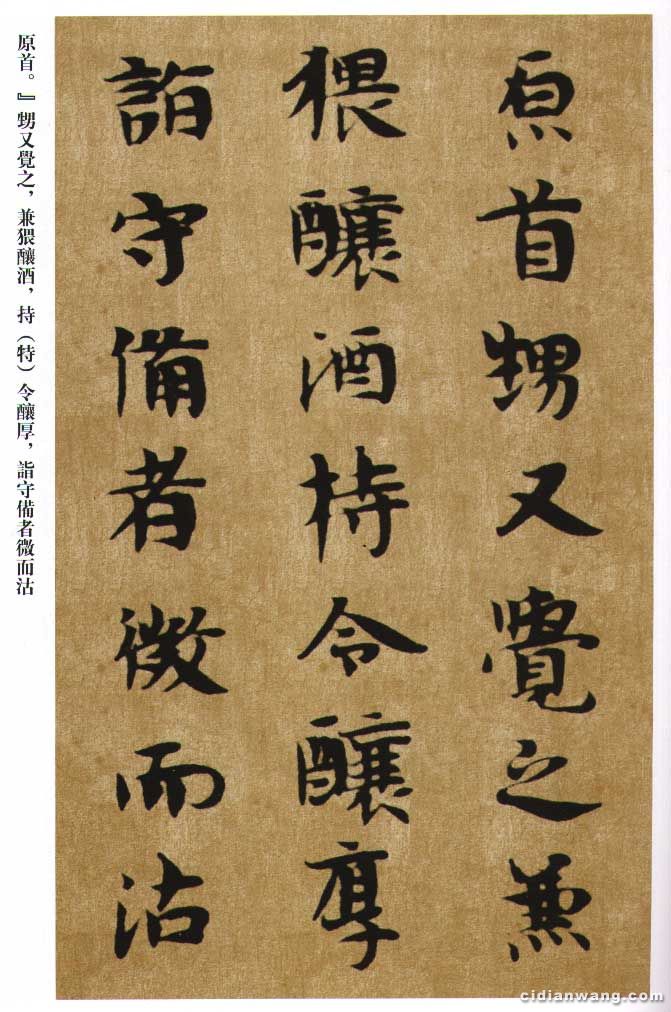 原首甥又覺之兼
猥釀酒持令釀厚
詣守備者微而沽
原首。』甥又覺之，兼猥釀酒，持（特）令釀厚，詣守備者微而沽
cidianwang.com